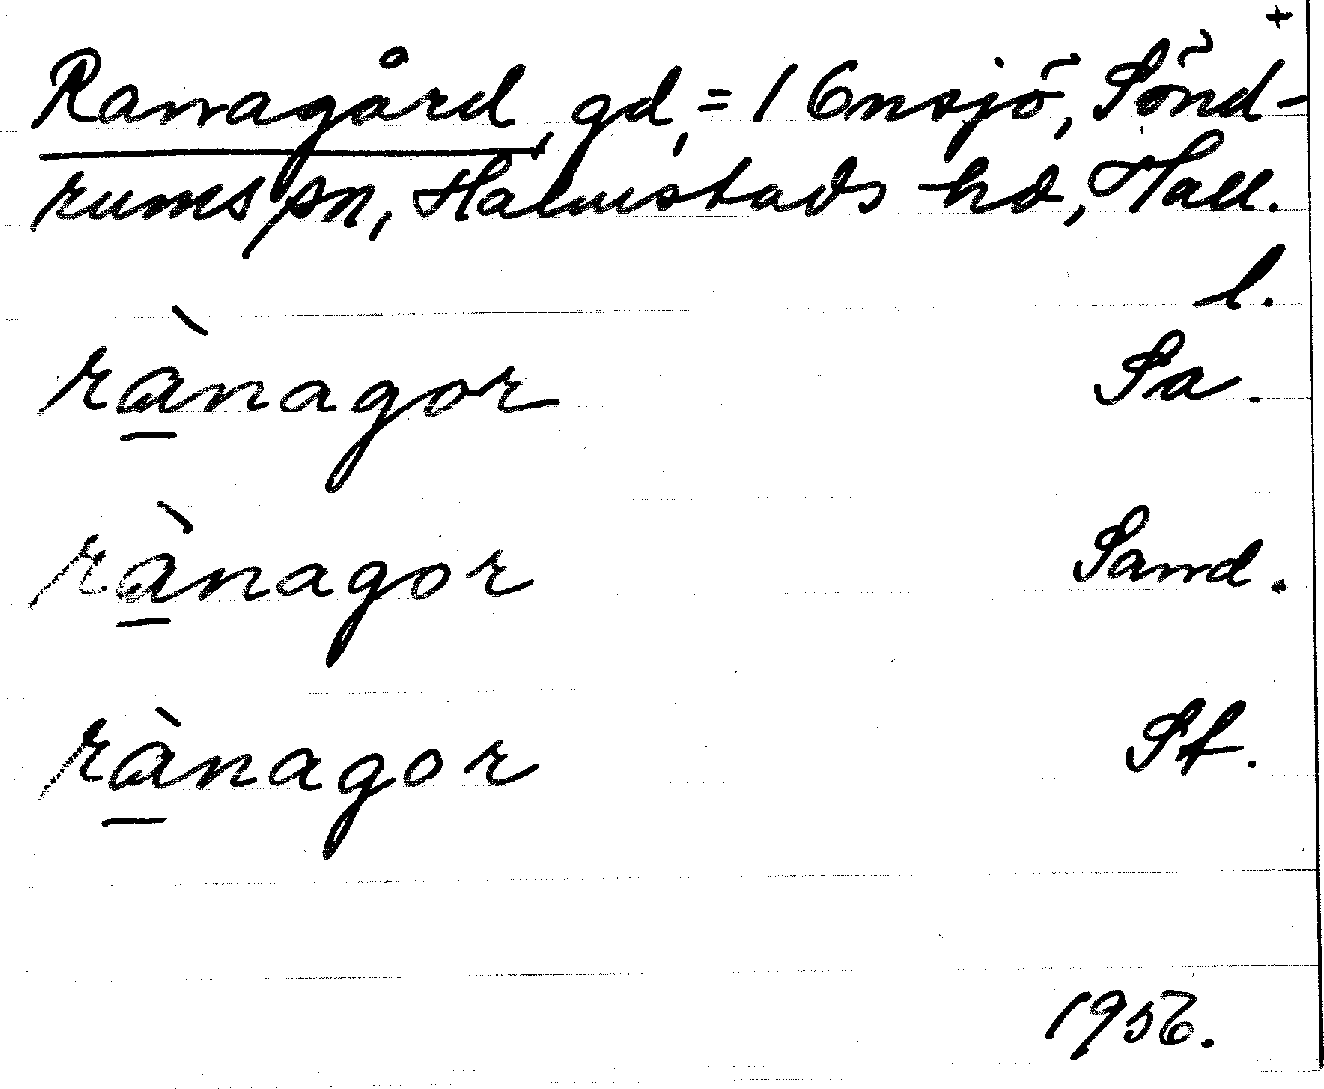 +
Ranagård, gd, = 1 Ensjö, Sönd-
rums sn, Halmstads hd, Hall.
l.
rànagor Sa.
rànagor Sand.
rànagor St.
1956.